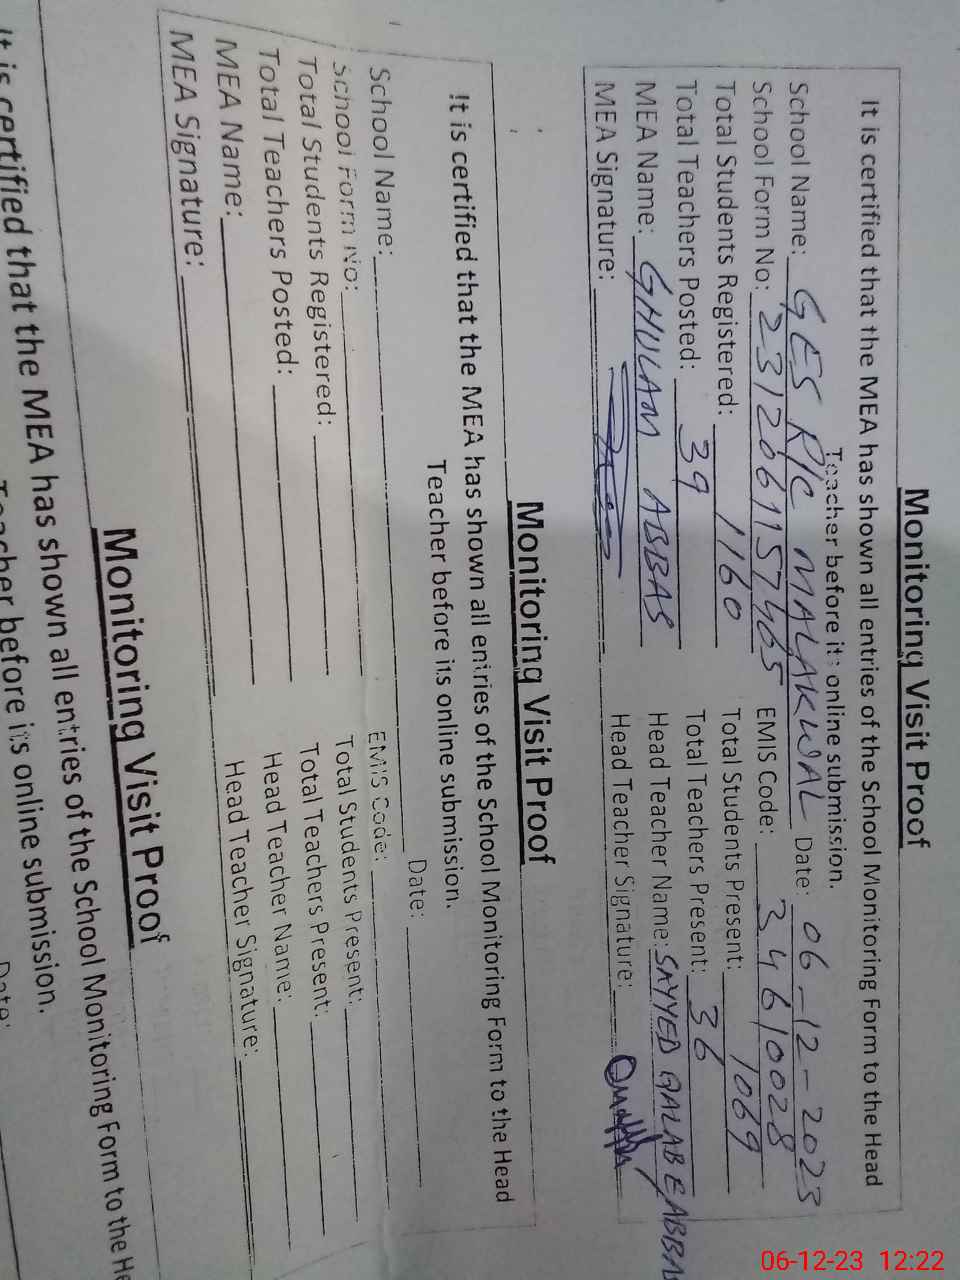 Monitoring Visit Proof
It is certified that the MEA has shown all entries of the School Monitoring Form to the Head
Teacher before its online submission.
School Name: GES R/C MALAKWAL Date: 06-12-2023
School Form No: 2312061157465 EMIS Code: 34610028
Total Students Registered: 1160 Total Students Present: 1069
Total Teachers Posted: 39 Total Teachers Present: 36
MEA Name: GHULAM ABBAS Head Teacher Name: SAYYED QALAB E ABBAS
MEA Signature: Head Teacher Signature:
Monitoring Visit Proof
It is certified that the MEA has shown all entries of the School Monitoring Form to the Head
Teacher before its online submission.
School Name: Date:
School Form No: EMIS Code:
Total Students Registered: Total Students Present:
Total Teachers Posted: Total Teachers Present:
MEA Name: Head Teacher Name:
MEA Signature: Head Teacher Signature:
Monitoring Visit Proof
It is certified that the MEA has shown all entries of the School Monitoring Form to the He
Teacher before its online submission.
Date:
06-12-23 12:22